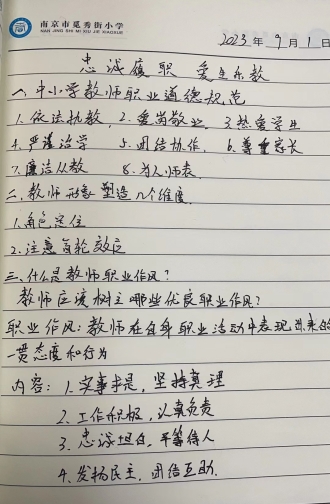 南京市觅秀街小学
NAN JING SHI MI XIU JIE XIAOXUE
2023年9月1日
忠诚履职 爱生乐教
一、中小学教师职业道德规范
1.依法执教, 2.爱岗敬业. 3.热爱学生
4.严谨治学 5.团结协作. 6.尊重家长
7.廉洁从教 8.为人师表.
二、教师形象塑造几个维度.
1.角色定位
2.注意首轮效应
三、什么是教师职业作风?
教师应该树立哪些优良职业作风?
职业作风:教师在自身职业活动中表现出来的
一贯态度和行为
内容: 1.实事求是, 坚持真理
2.工作积极, 认真负责
3.忠诚坦白, 平等待人
4.发扬民主, 团结互助.